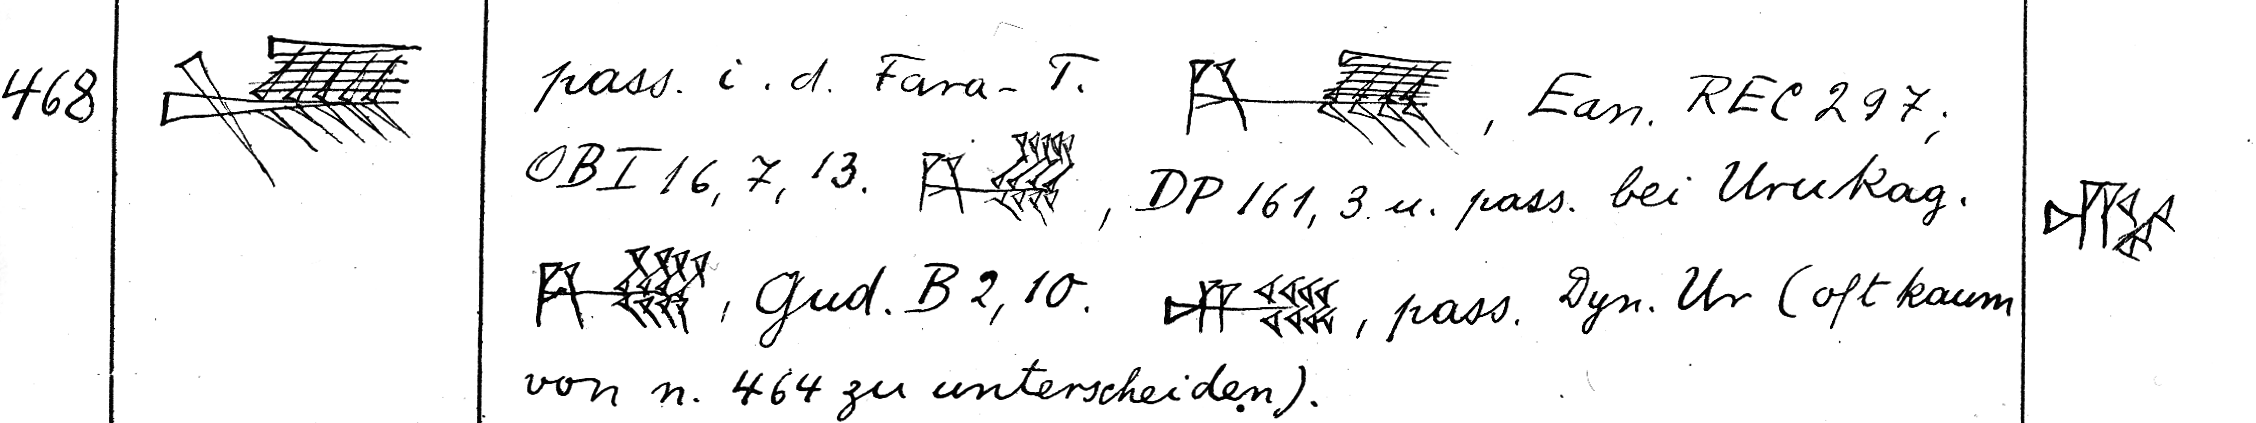 468 pass. i. d. Fara-T. , Ean. REC 297;
OBI 16, 7, 13. , DP 161, 3 u. pass. bei Urukag.
, Gud. B 2, 10. , pass. Dyn. Ur (oft kaum
von n. 464 zu unterscheiden).